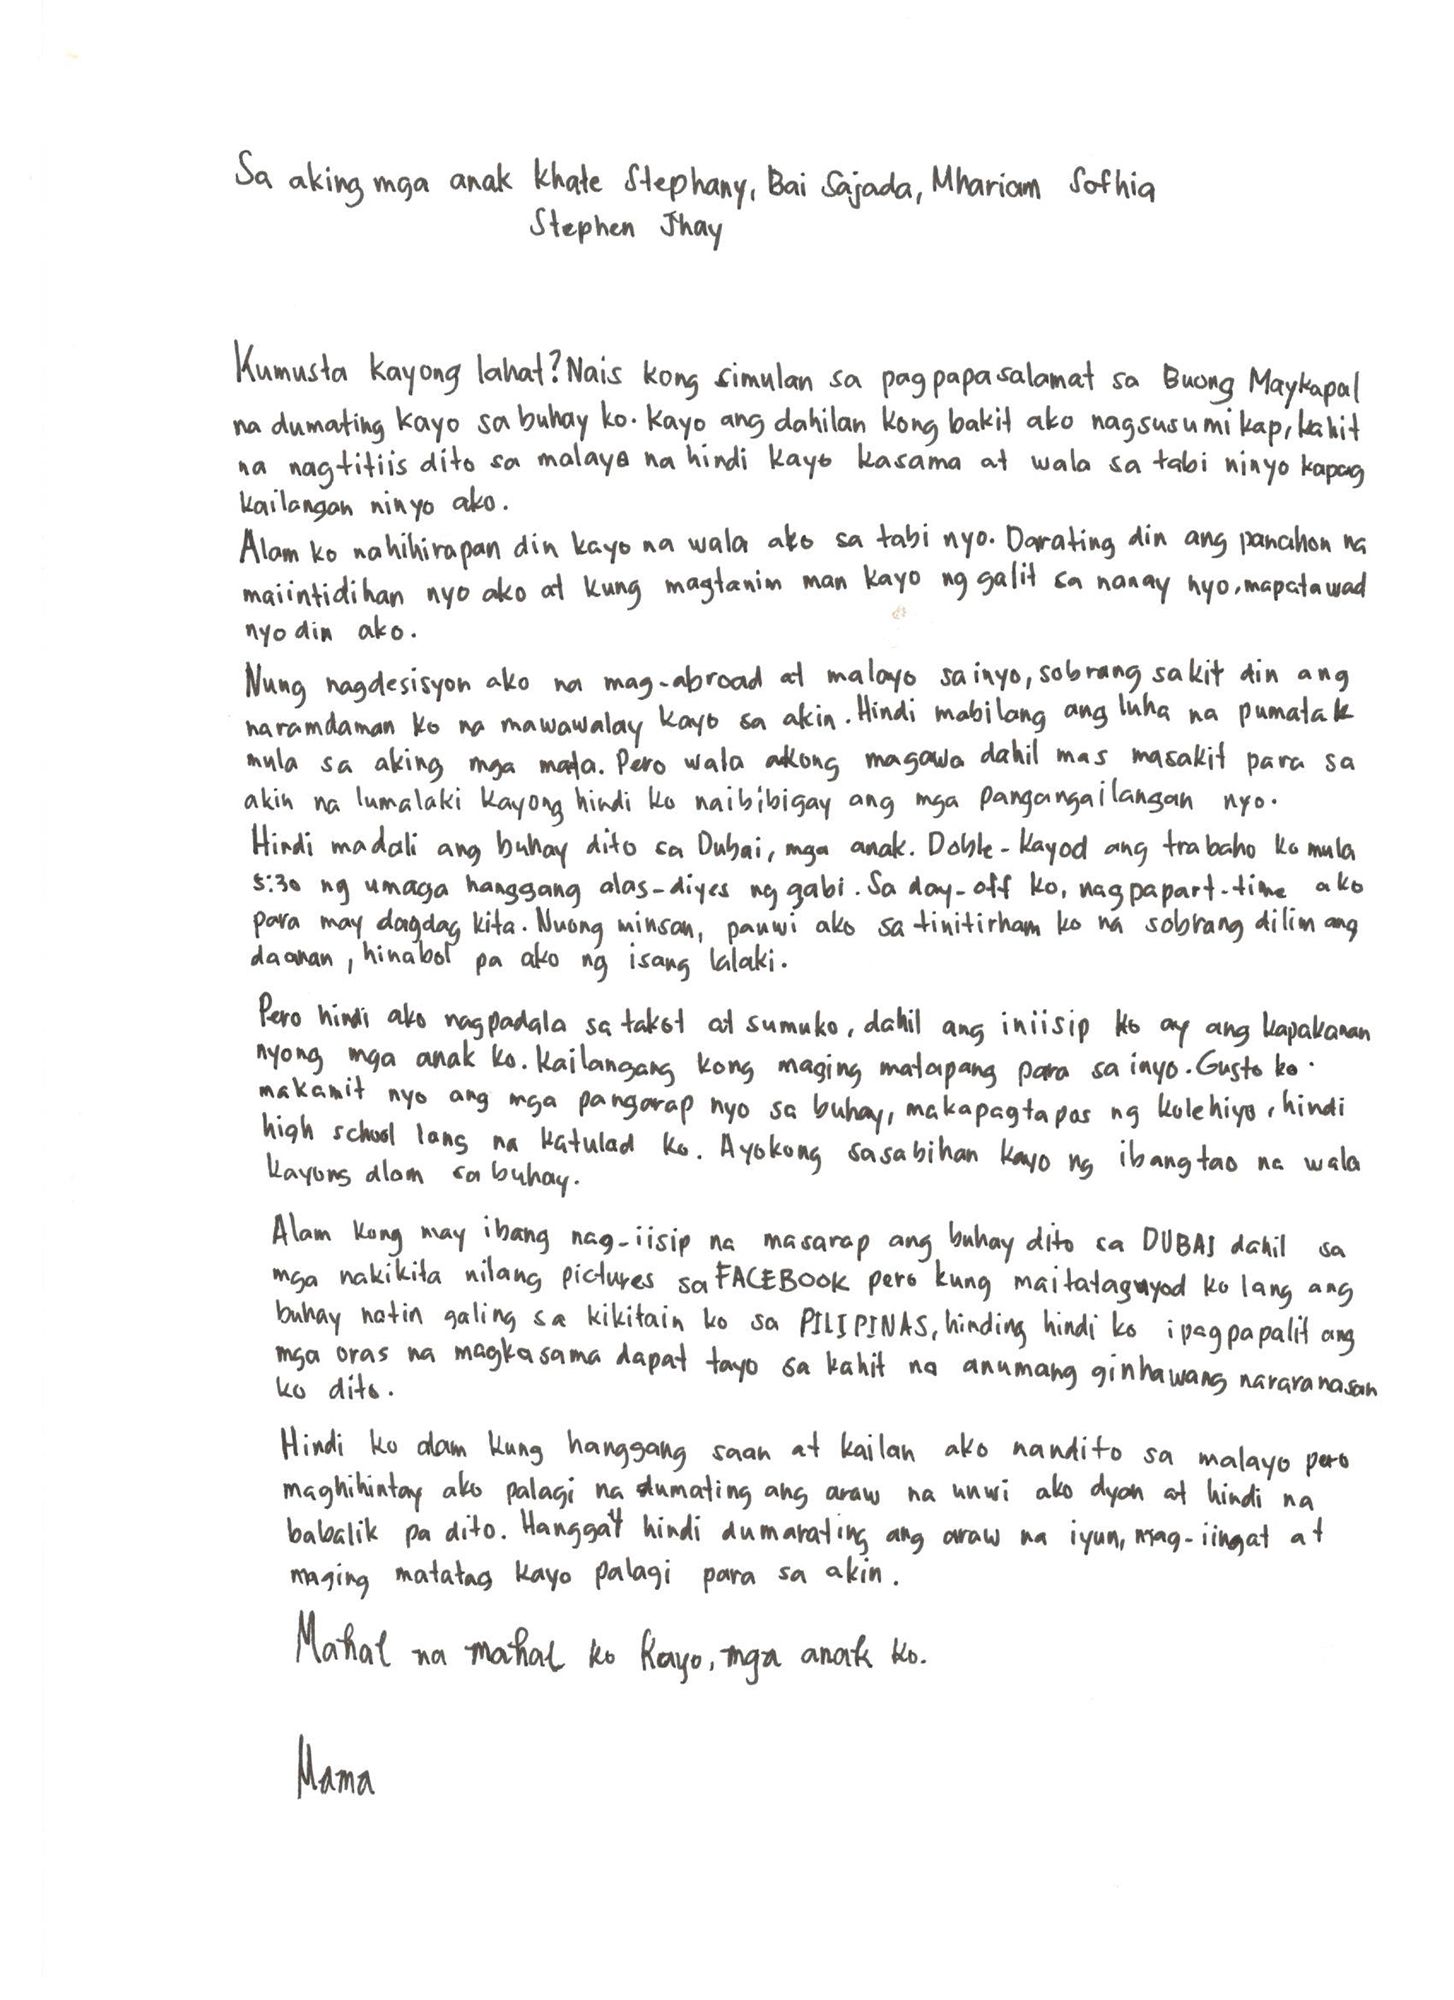 Sa aking mga anak Khate Stephany, Bai Sajada, Mhariam Sofhia
Stephen Jhay
Kumusta kayong lahat? Nais kong simulan sa pagpapasalamat sa Buong Maykapal
na dumating kayo sa buhay ko. Kayo ang dahilan kong bakit ako nagsusumikap, kahit
na nagtitiis dito sa malayo na hindi kayo kasama at wala sa tabi ninyo kapag
kailangan ninyo ako.
Alam ko nahihirapan din kayo na wala ako sa tabi nyo. Darating din ang panahon na
maiintidihan nyo ako at kung magtanim man kayo ng galit sa nanay nyo, mapatawad
nyo din ako.
Nung nagdesisyon ako na mag-abroad at malayo sa inyo, sobrang sakit din ang
naramdaman ko na mawawalay kayo sa akin. Hindi mabilang ang luha na pumatak
mula sa aking mga mata. Pero wala akong magawa dahil mas masakit para sa
akin na lumalaki kayong hindi ko naibibigay ang mga pangangailangan nyo.
Hindi madali ang buhay dito sa Dubai, mga anak. Doble-kayod ang trabaho ko mula
5:30 ng umaga hanggang alas-diyes ng gabi. Sa day-off ko, nagpapart-time ako
para may dagdag kita. Nuong minsan, pauwi ako sa tinitirham ko na sobrang dilim ang
daanan, hinabol pa ako ng isang lalaki.
Pero hindi ako nagpadala sa takot at sumuko, dahil ang iniisip ko ay ang kapakanan
nyong mga anak ko. Kailangang kong maging matapang para sa inyo. Gusto ko
makamit nyo ang mga pangarap nyo sa buhay, makapagtapos ng kolehiyo, hindi
high school lang na katulad ko. Ayokong sasabihan kayo ng ibang tao na wala
kayong alam sa buhay.
Alam kong may ibang nag-iisip na masarap ang buhay dito sa DUBAI dahil sa
mga nakikita nilang pictures sa FACEBOOK pero kung maitataguyod ko lang ang
buhay natin galing sa kikitain ko sa PILIPINAS, hinding hindi ko ipagpapalit ang
mga oras na magkasama dapat tayo sa kahit na anumang ginhawang nararanasan
ko dito.
Hindi ko alam kung hanggang saan at kailan ako nandito sa malayo pero
maghihintay ako palagi na dumating ang araw na uuwi ako dyan at hindi na
babalik pa dito. Hanggat hindi dumarating ang araw na iyun, mag-iingat at
maging matatag kayo palagi para sa akin.
Mahal na mahal ko kayo, mga anak ko.
Mama